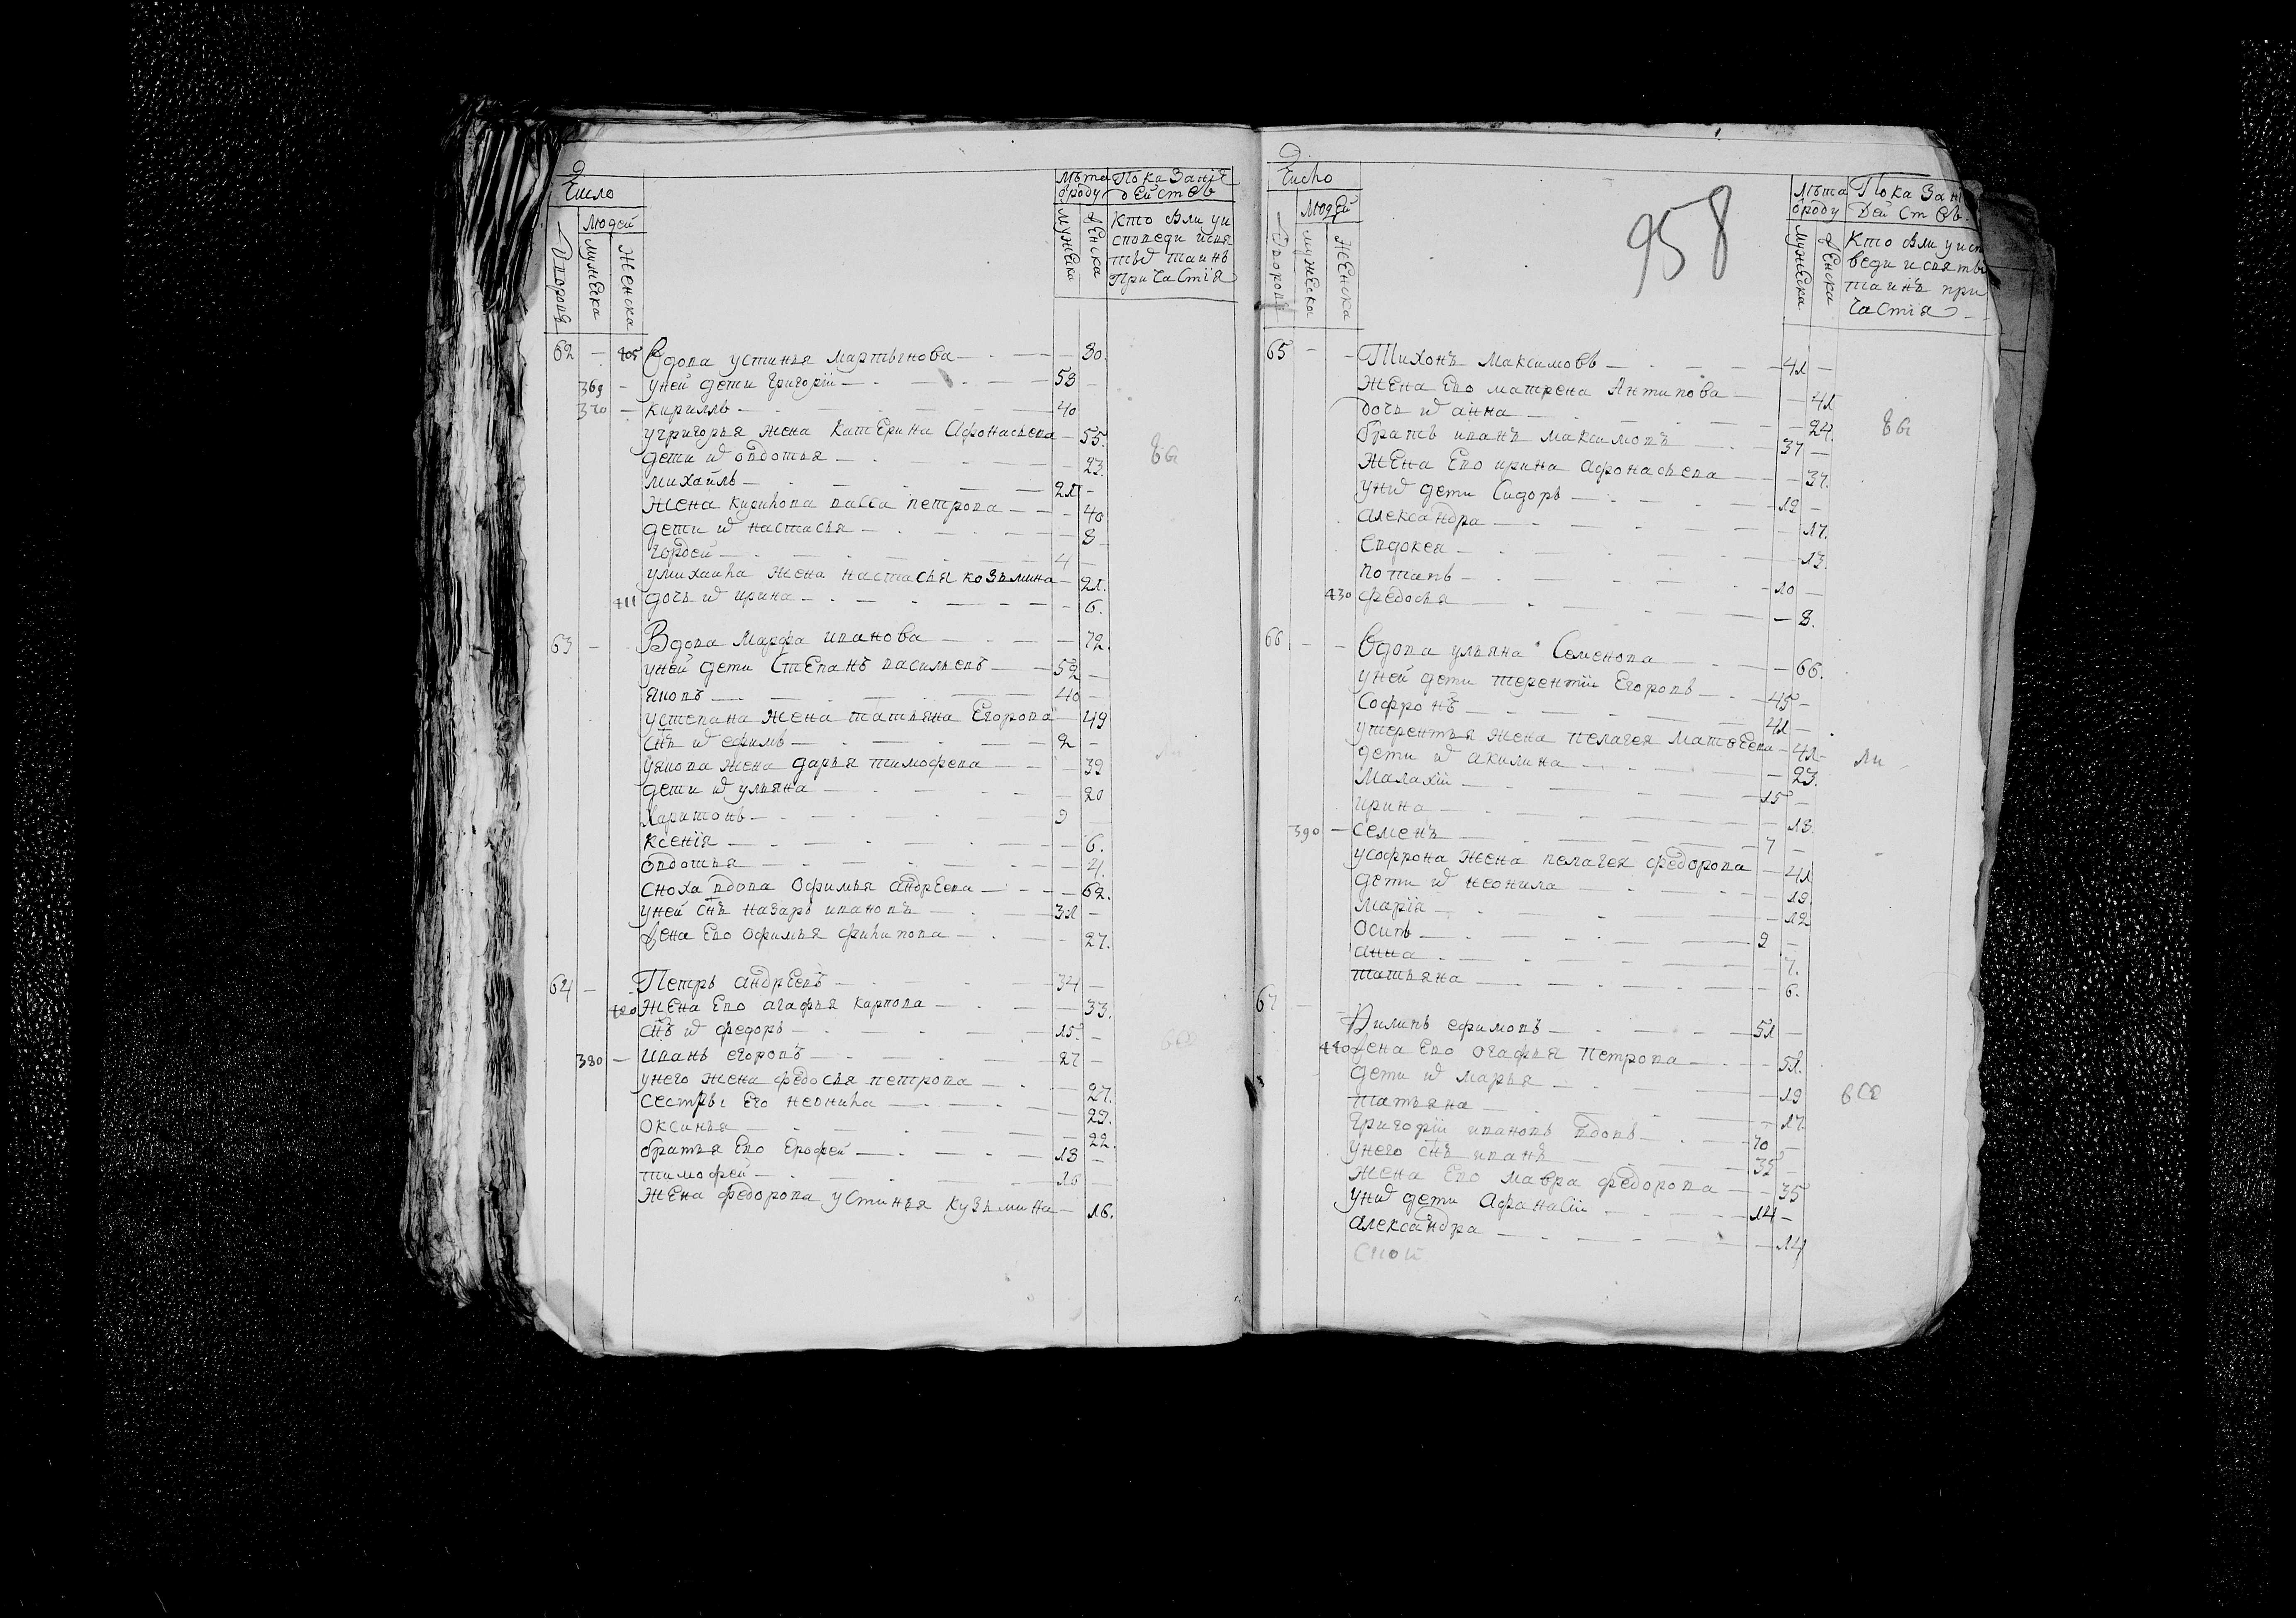 Число
Людей
Дворовъ
мужеска
женска
Лѣта
ѿроду
мужеска
женска
Показаніе
дейстѳв
Кто были уи
споведи исвя
тыѿ таинъ
Причастія
62 — 405 Вдова устинья мартынова — 80.
369 — уней дети григорїи — 58 —
370 — кирилъ — 40
угригорья жена катерина афонасьева — 55.
дети ѿ овдотья — 23.
михаилъ — 21 —
жена кирилова васса петрова — 40
дети ѿ настасья — 8
гордеи — 4 —
умихаила жена настасья козьмина — 21.
411 дочь ѿ ирина — 6.
63 — Вдова Марфа иванова — 72.
уней дети Степанъ васильевъ — 52 —
яковъ — 40 —
устепана жена татьяна Егорова — 49
сн҃ъ ѿ ефимъ — 2 —
уякова жена дарья тимофева — 39
дети ѿ ульяна — 20
Харитонъ — 9 —
ксенїя — 6.
овдотья — 4.
сноха вдова офимья андреева — 62.
уней сн҃ъ назаръ ивановъ — 31 —
жена Ево офимья филипова — 27.
64 — Петръ андреевъ — 34 —
420 жена Ево агафья карпова — 33.
сн҃ъ ѿ федоръ — 15. —
380 — иванъ егоровъ — 27 —
унего жена федосья петрова — 27.
сестры Его неонила — 23.
оксинья — 22.
братья Ево Ерофей — 18 —
тимофей — 16
жена федорова устинья кузьмина — 16.
вы
ли
Число
Людей
Дворовъ
мужеска
женска
958
Лѣта
ѿроду
мужеска
женска
Показанї
дейстѳв
Кто были уисп
веди исвяты
таинъ при
частїя
65 — Тихонъ Максимовъ — 41 —
жена Ево матрена Антипова — 41
дочь ѿ анна — 24.
братъ иванъ максимовъ — 37 —
жена Ево ирина афонасьева — 37.
униѿ дети Сидоръ — 19 —
александра — 17.
евдокея — 13.
потапъ — 10 —
430 федосья — 8.
66 — Вдова ульяна Семенова — 66.
уней дети терентїи Егоровъ — 45 —
софронъ — 41 —
утерентья жена пелагея Матвеева — 41
дети ѿ акилина — 23.
малахїи — 15 —
ирина — 13.
390 — семенъ — 7 —
усофрона жена пелагея федорова — 41
дети ѿ неонила — 19
марїя — 12
осипъ — 9 —
анна — 7.
татьяна — 6.
67 — Филипъ ефимовъ — 51 —
440 жена Ево огафья Петрова — 51.
дети ѿ марья — 19
татьяна — 17
григорїи ивановъ вдовъ — 70 —
унего сн҃ъ иванъ — 35 —
жена Ево мавра федорова — 35
униѿ дети Афанасїи — 14 —
александра — 14
вы
ли
все